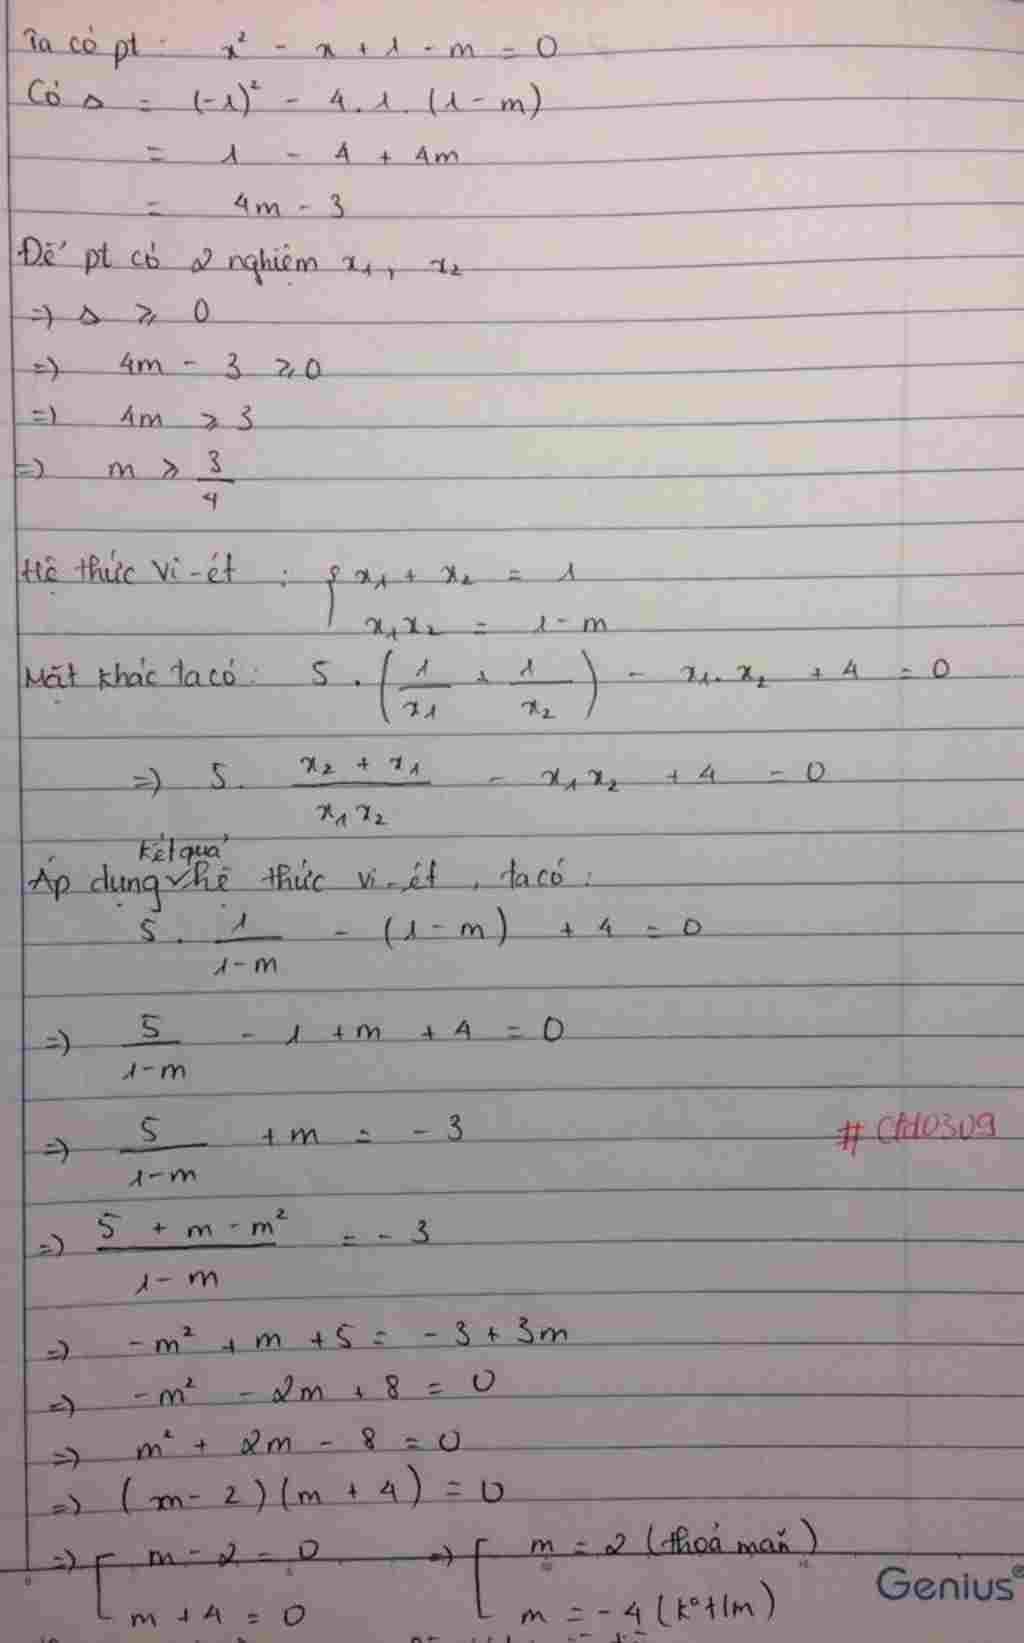 Ta có pt: x² - x + 1 - m = 0
Có Δ = (-1)² - 4.1.(1-m)
= 1 - 4 + 4m
= 4m - 3
Để pt có 2 nghiệm x₁, x₂
=> Δ ⩾ 0
=> 4m - 3 ⩾ 0
=> 4m ⩾ 3
=> m ⩾ 3/4
Hệ thức Vi-ét : { x₁ + x₂ = 1
x₁x₂ = 1-m
Mặt khác ta có: 5.(1/x₁ + 1/x₂) - x₁.x₂ + 4 = 0
=> 5. (x₂ + x₁)/(x₁x₂) - x₁x₂ + 4 = 0
kết quả
Áp dụng hệ thức vi-ét, ta có:
5. 1/(1-m) - (1-m) + 4 = 0
=> 5/(1-m) - 1 + m + 4 = 0
=> 5/(1-m) + m = -3
=> (5 + m - m²)/(1-m) = -3
=> -m² + m + 5 = -3 + 3m
=> -m² - 2m + 8 = 0
=> m² + 2m - 8 = 0
=> (m-2)(m+4) = 0
=> [ m - 2 = 0 => [ m = 2 (thoả mãn)
m + 4 = 0 m = -4 (k°+lm)
Genius